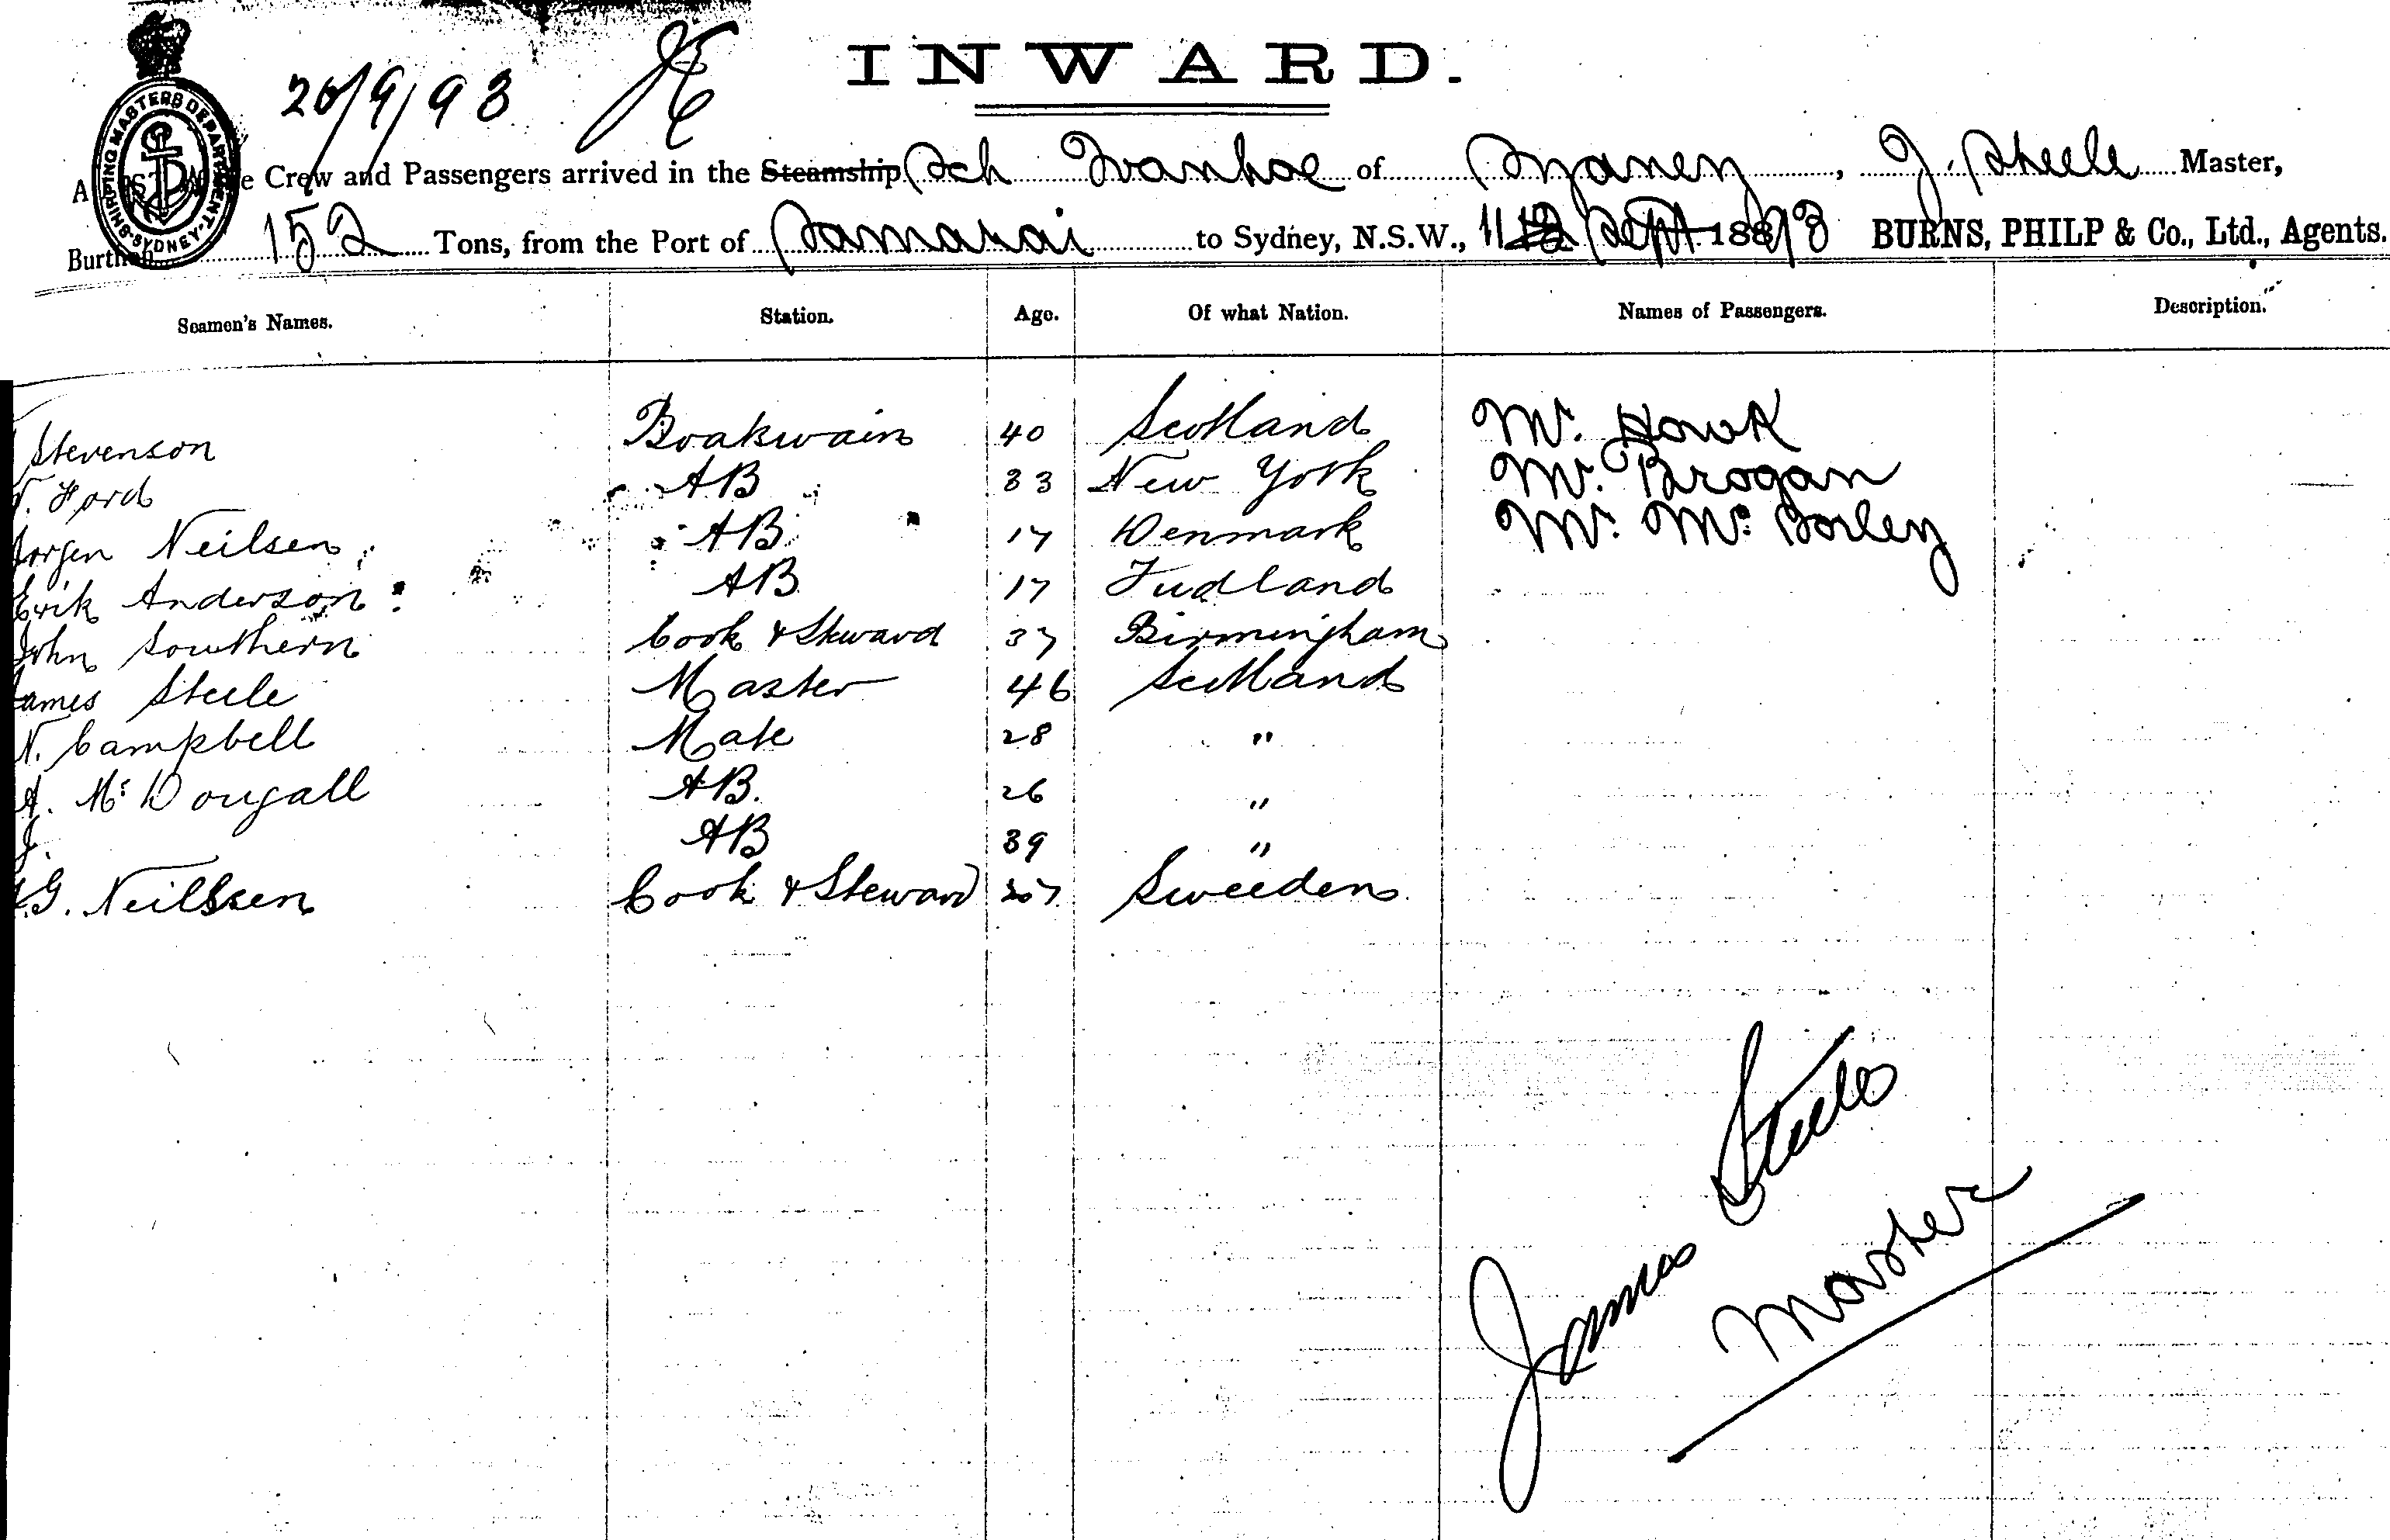 INWARD.
20/9/93 JE
SHIPPING MASTERS DEPARTMENT · SYDNEY ·
A LIST of the Crew and Passengers arrived in the Steamship Sch Ivanhoe of Sydney, J. Steele Master,
Burthen 152 Tons, from the Port of Samarai to Sydney, N.S.W., Sept 1893 BURNS, PHILP & Co., Ltd., Agents.
Seamen's Names. Station. Age. Of what Nation. Names of Passengers. Description.
Stevenson Boatswain 40 Scotland Mr. Houk
Ford AB 33 New York Mr. Brogan
Jorgen Neilsen AB 17 Denmark Mr. Mc Sorley
Erik Anderson AB 17 Judland
John Southern Cook & Steward 37 Birmingham
James Steele Master 46 Scotland
N. Campbell Mate 28 "
A. Mc Dougall AB. 26 "
J. AB 39 "
G. Neilssen Cook & Steward 27 Sweeden
James Steele
Master